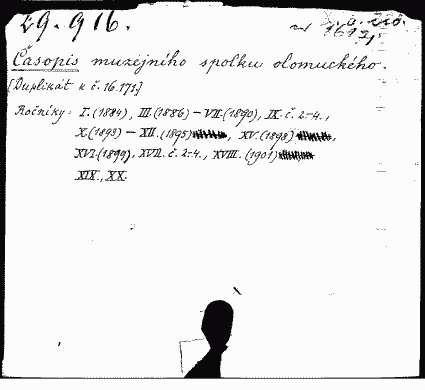 29.916.
Časopis muzejního spolku olomuckého.
[Duplikát k č. 16.173]
Ročníky: I.(1884), III.(1886) – VII.(1890), IX. č. 2.-4.,
X.(1893) – XII.(1895), XV.(1898),
XVI.(1899), XVII. č. 2.-4., XVIII.(1901)
XIX., XX.